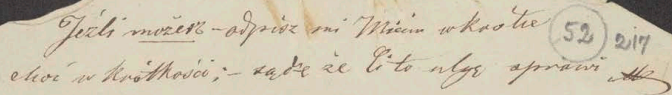 Jeźli możesz – odpisz mi Miciu wkrótce 52 217
choć w krótkości; – sądzę że Ci to ulgę sprawi